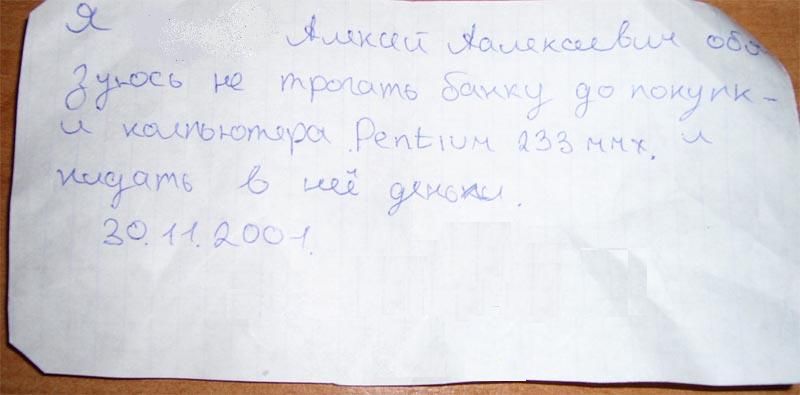 Я Алексей Аалексеевич обя
зуюсь не трогать банку до покупк-
и компьютера Pentium 233 ммх. и
кидать в неё деньки.
30.11.2001.